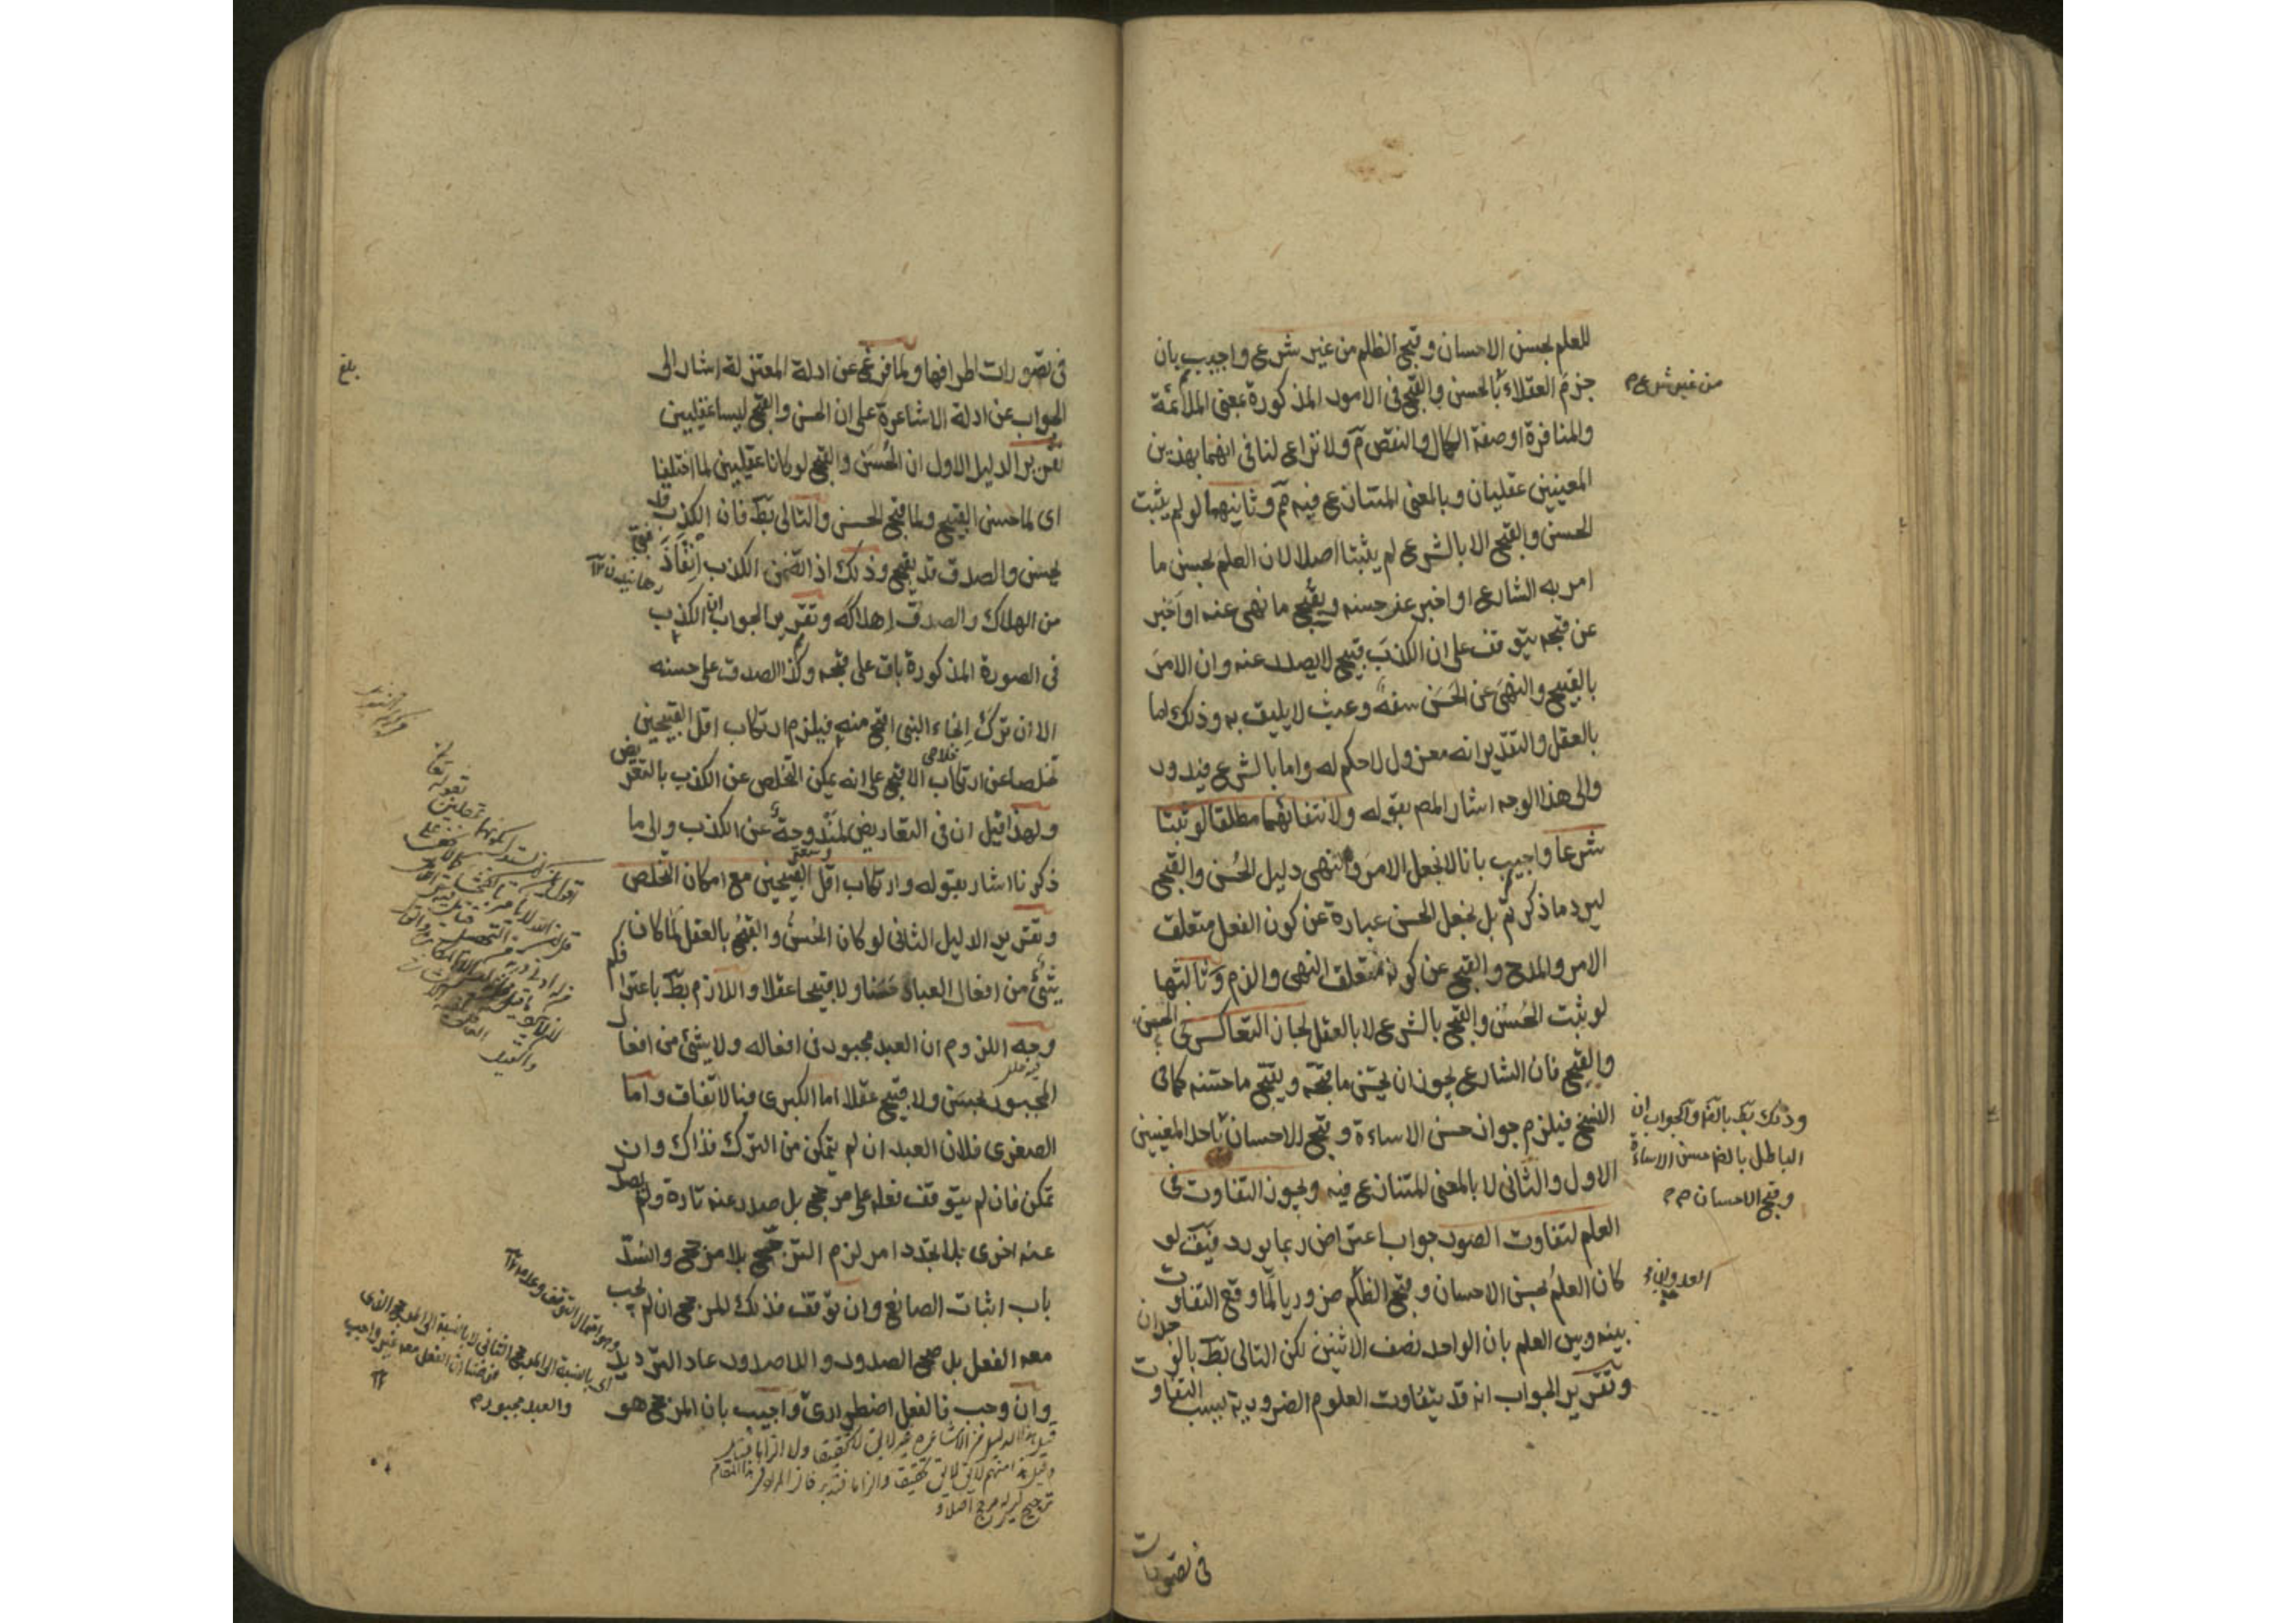 للعلم بحسن الاحسان وقبح الظلم من غير شرع واجيب بان
جزم العقلاء بالحسن والقبح فى الامور المذكورة بمعنى الملائمة
والمنافرة او صفة الكمال والنقص مّ ولا نزاع لنا فى انهما بهذين
المعنيين عقليان وبالمعنى المتنازع فيه مّ وثانيهما لو لم يثبت
الحسن والقبح الا بالشرع لم يثبتا اصلا لان العلم بحسن ما
امر به الشارع او اخبر عن حسنه وبقبح ما نهى عنه او اخبر
عن قبحه يتوقف على ان الكذب قبيح لا يصدر عنه وان الامر
بالقبيح والنهى عن الحسن سفه وعبث لا يليق به وذلك اما
بالعقل والتقدير انه معزول لا حكم له واما بالشرع فيدور
والى هذا الوجه اشار المص بقوله ولانتفائهما مطلقا لو ثبتا
شرعا واجيب بانا لا نجعل الامر والنهى دليل الحسن والقبح
ليرد ما ذكرتم بل نجعل الحسن عبارة عن كون الفعل متعلق
الامر والمدح والقبح عن كونه متعلق النهى والذم وثالثها
لو ثبت الحسن والقبح بالشرع لا بالعقل لجاز التعاكس فى الحسن
والقبح فان الشارع يجوز ان يحسّن ما قبّحه ويقبّح ما حسّنه كما فى
النسخ فيلزم جواز حسن الاساءة وقبح الاحسان باحد المعنيين
الاول والثانى لا بالمعنى المتنازع فيه ويجوز التفاوت فى
العلم لتفاوت الصور جواب اعتراض ربما يورد فيقّ لو
كان العلم بحسن الاحسان وقبح الظلم ضروريا لما وقع التفاوت
بينه وبين العلم بان الواحد نصف الاثنين لكن التالى بطّ بالوجدان
وتقرير الجواب انه قد يتفاوت العلوم الضرورية بسبب التفاوت
من غير شرع م
وذلك بطّ بالضّ والجواب ان
الباطل بالضّ حسن الاساءة
وقبح الاحسان م م
العدوان
فى تصورات
فى تصورات اطرافها ولما فرغ عن ادلة المعتزلة اشار الى
الجواب عن ادلة الاشاعرة على ان الحسن والقبح ليسا عقليين
تقرير الدليل الاول ان الحسن والقبح لو كانا عقليين لما اختلفا
اى لما حسن القبيح ولما قبح الحسن والتالى بطّ فان الكذب قد
يحسن والصدق قد يقبح وذلك اذا تضمن الكذب انقاذ نبى
من الهلاك والصدق اهلاكه وتقرير الجواب ان الكذب
فى الصورة المذكورة باق على قبحه وكذا الصدق على حسنه
الا ان ترك انجاء النبى اقبح منه فيلزم ارتكاب اقل القبيحين
تخلصا عن ارتكاب الاقبح على انه يمكن التخلص عن الكذب بالتعريض
ولهذا قيل ان فى التعاريض لمندوحة عن الكذب والى ما
ذكرنا اشار بقوله وارتكاب اقل القبيحين مع امكان التخلص
وتقرير الدليل الثانى لو كان الحسن والقبح بالعقل لما كان
شئ من افعال العباد حسنا ولا قبيحا عقلا واللازم بطّ باعترافكم
وجه اللزوم ان العبد مجبور فى افعاله ولا شئ من افعال
المجبور بحسن ولا قبيح عقلا اما الكبرى فبالاتفاق واما
الصغرى فلان العبد ان لم يتمكن من الترك فذاك وان
تمكن فان لم يتوقف فعله على مرجح بل صدر عنه تارة ولم يصدر
عنه اخرى بلا تجدد امر لزم الترجح بلا مرجح وانسدّ
باب اثبات الصانع وان توقف فذلك المرجح ان لم يجب
معه الفعل بل صح الصدور واللاصدور عاد الترديد
وان وجب فالفعل اضطرارى واجيب بان المرجح هو
بلغ
خلاص
وسعة
وهو احتمال التوقف وعدمه
اى بالنسبة الى المرجح الثانى لا بالنسبة الى المرجح الذى
فرضنا ان الفعل معه غير واجب
والعبد مجبور م